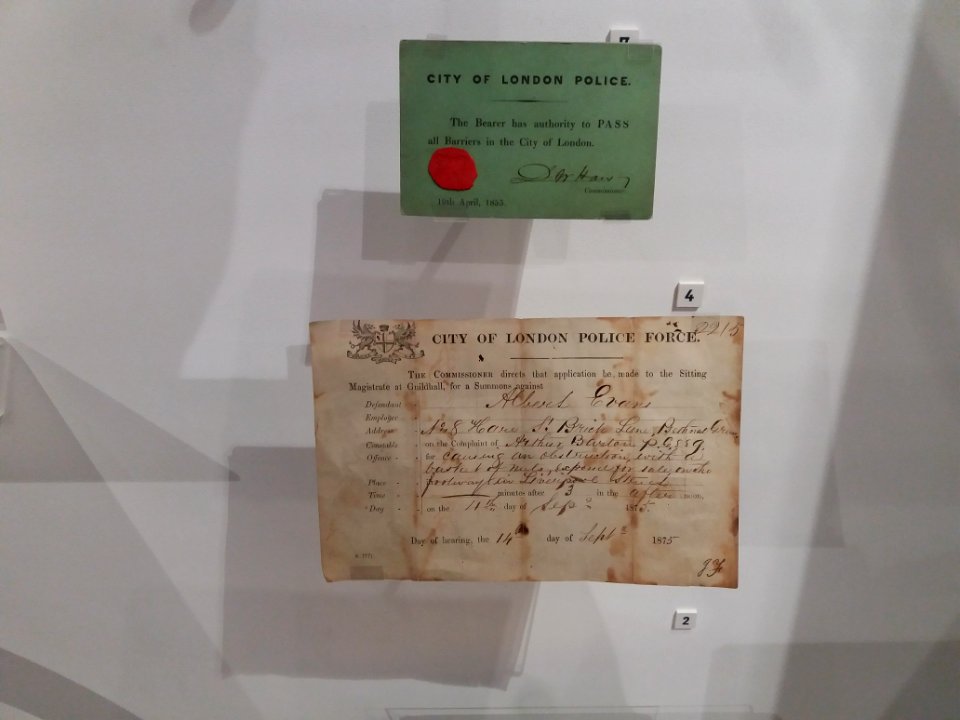 7
CITY OF LONDON POLICE.
The Bearer has authority to PASS
all Barriers in the City of London.
Commissioner
19th April, 1855.
4
CITY OF LONDON POLICE FORCE. 2215
THE COMMISSIONER directs that application be made to the Sitting
Magistrate at Guildhall, for a Summons against
Defendant - Albert Evans
Employer -
Address - No 8 Hare St Brick Lane Bethnal Green
Constable - on the Complaint of Arthur Barton P.C. 889
Offence - for causing an obstruction with a
basket of nuts, exposed for sale, on the
Place - footway in Liverpool Street
Time - minutes after 3 in the after noon,
Day - on the 11th day of Sep 1875.
Day of hearing, the 14 day of Sept 1875
2